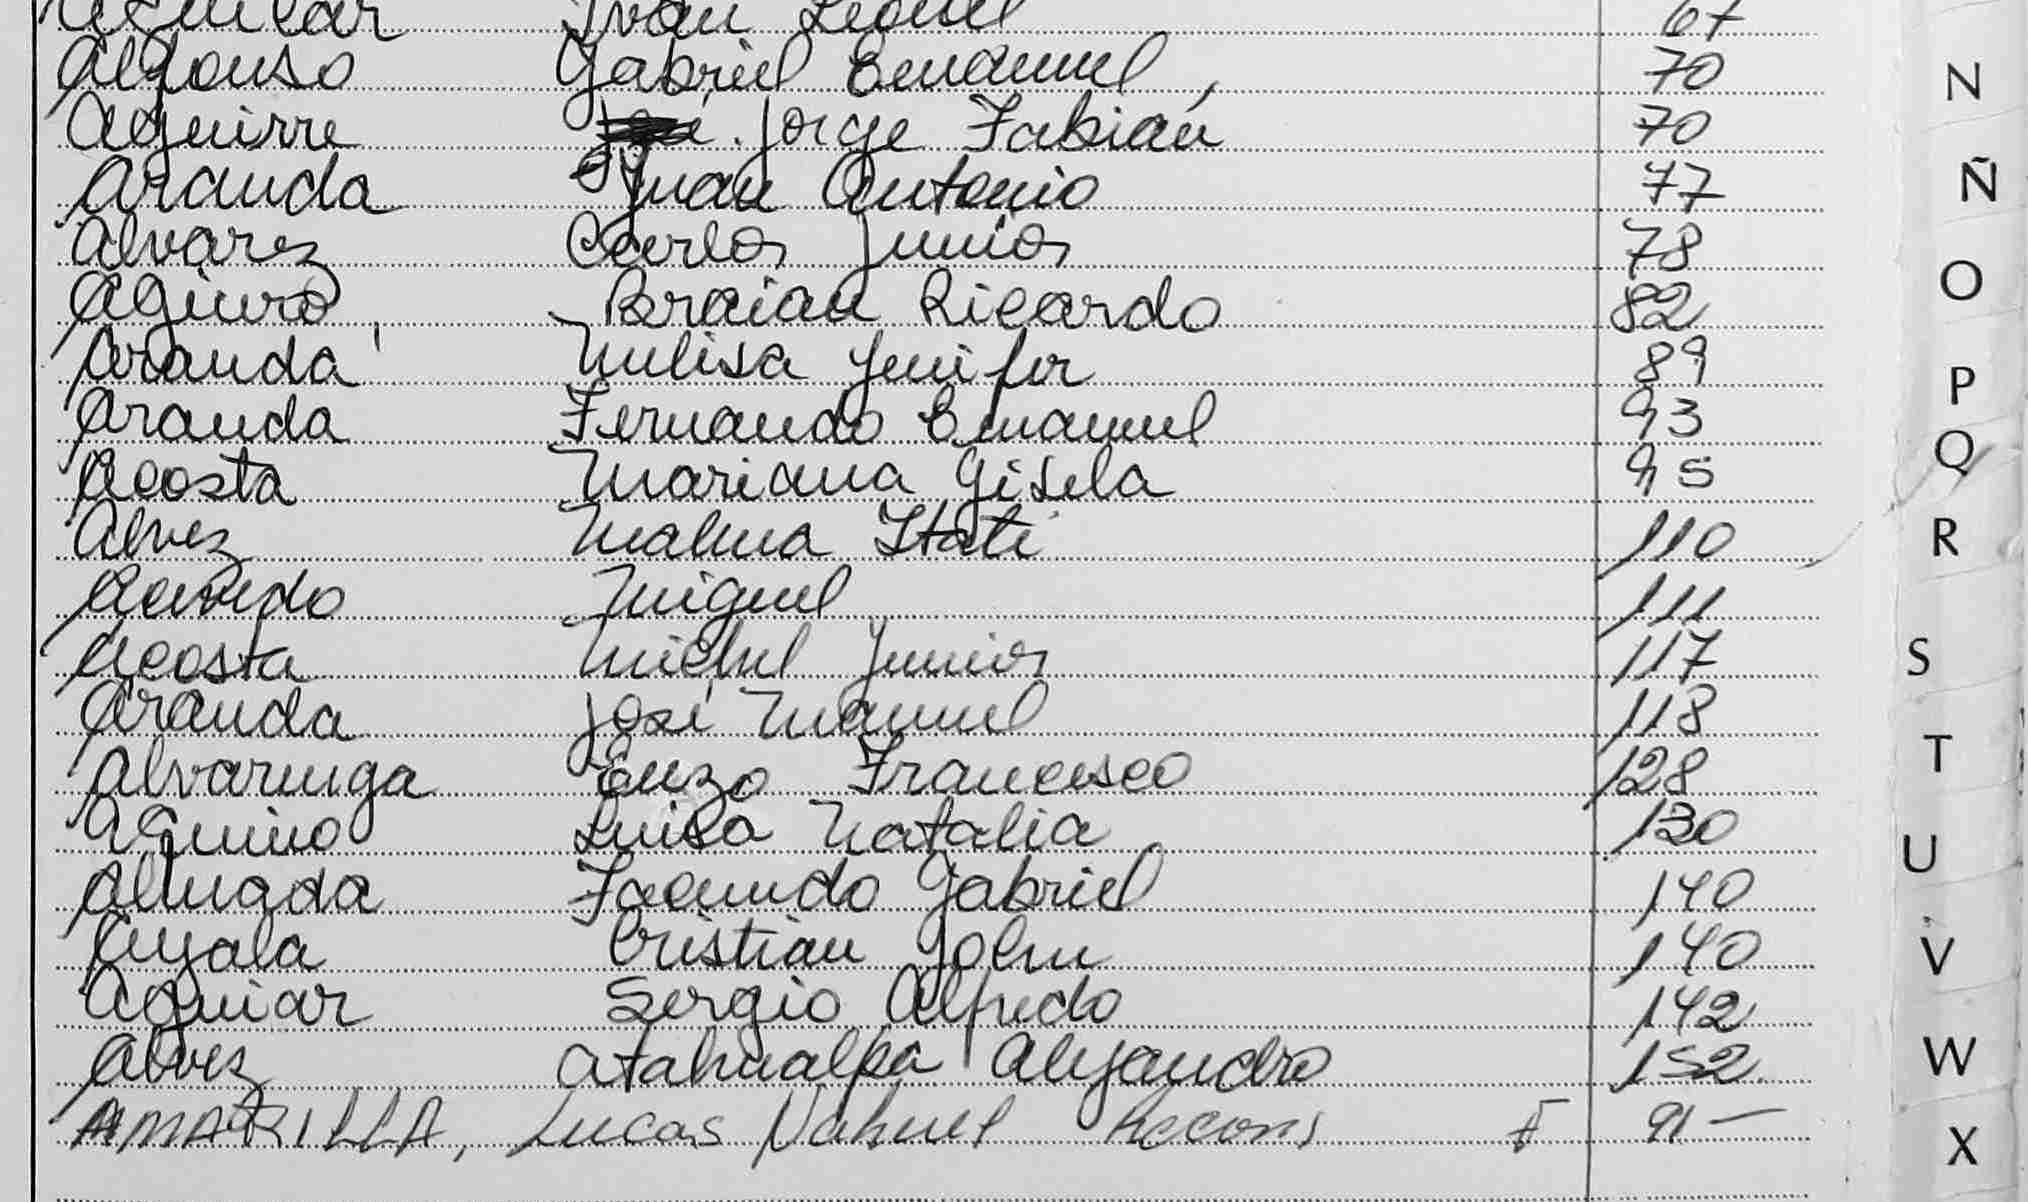 Aguilar Iván Leonel 67
Alfonso Gabriel Emanuel 70 N
Aguirre Jorge Fabián 70
Aranda Juan Antonio 77 Ñ
Alvarez Carlos Junior 78
Aguirre Braian Ricardo 82 O
Aranda Melisa Jenifer 89 P
Aranda Fernando Emanuel 93
Acosta Mariana Gisela 95 Q
Alvez Malena Itatí 110 R
Acevedo Miguel 111
Acosta Michel Junior 117 S
Aranda José Manuel 118
Alvarenga Enzo Francisco 128 T
Aquino Luisa Natalia 130
Almada Facundo Gabriel 140 U
Ayala Cristian John 140 V
Aguiar Sergio Alfredo 142
Alvez Atahualpa Alejandro 152 W
AMARILLA, Lucas Nahuel F 91- X